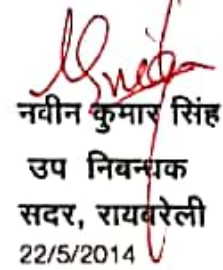 नवीन कुमार सिंह
उप निबन्धक
सदर, रायबरेली
22/5/2014